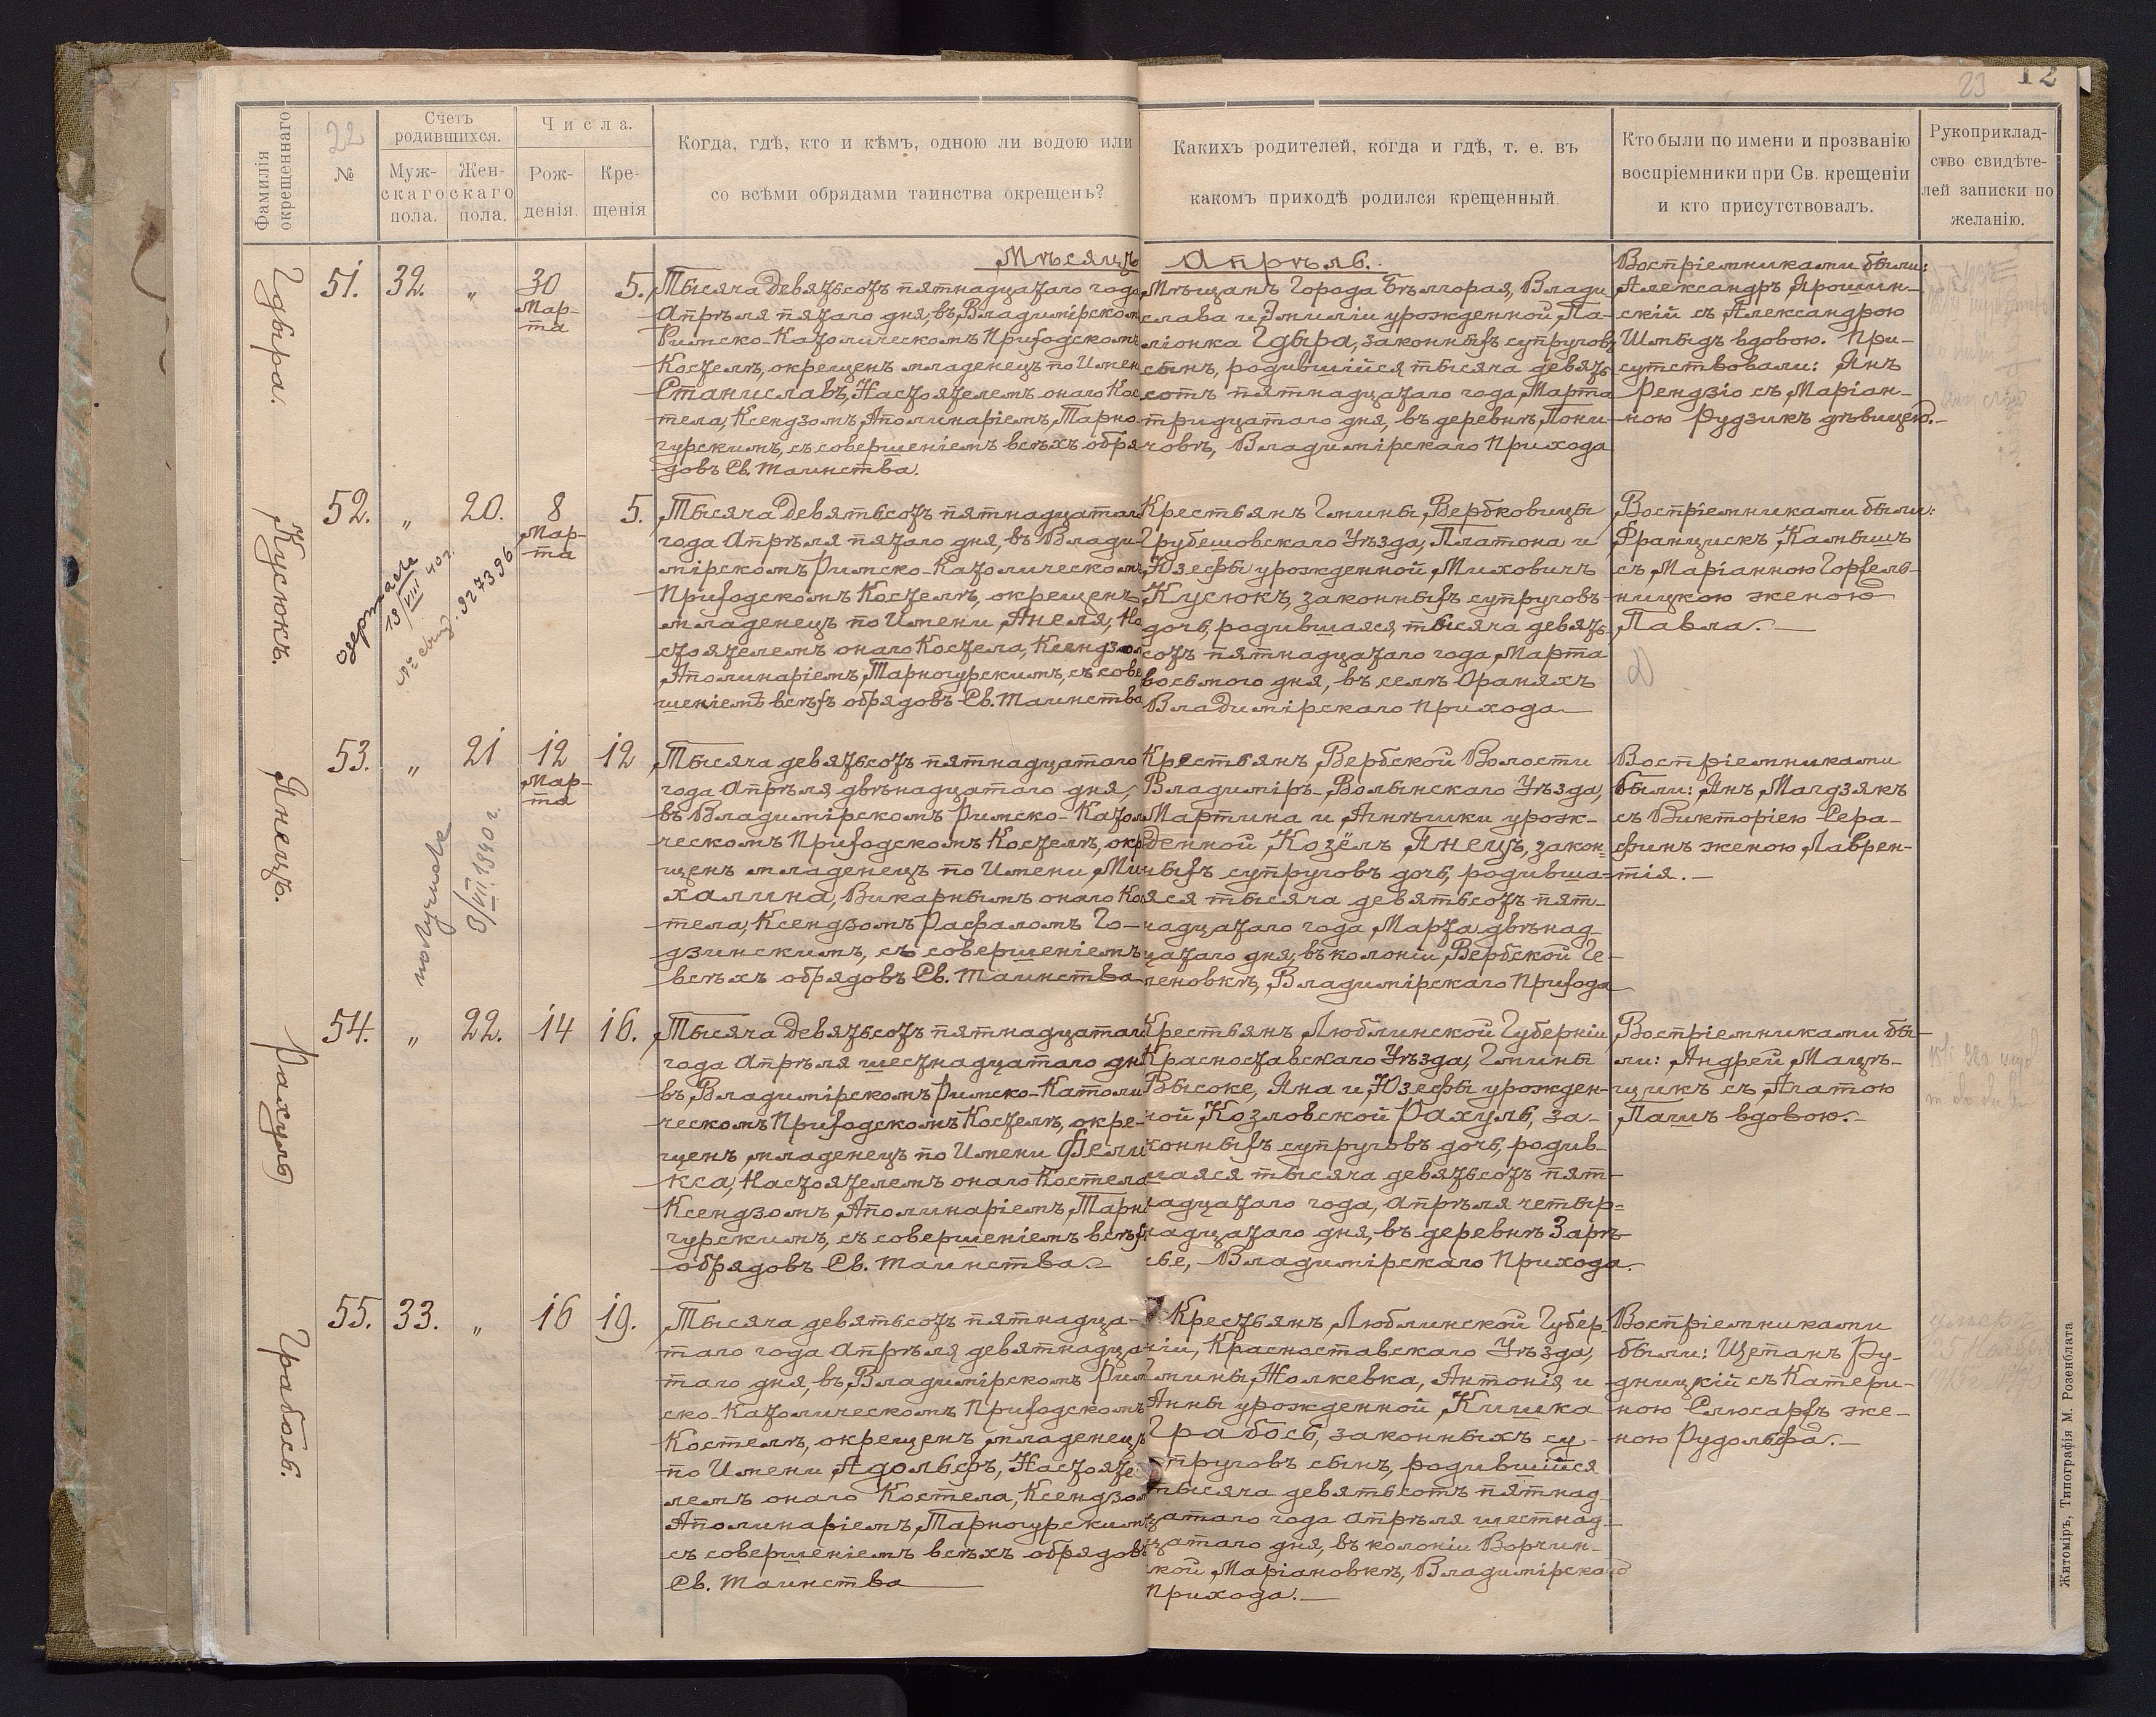 23 12
Фамилія окрещеннаго
22
№
Счетъ родившихся.
Муж-
скаго
пола.
Жен-
скаго
пола.
Числа.
Рож-
денія.
Кре-
щенія
Когда, гдѣ, кто и кѣмъ, одною ли водою или
со всѣми обрядами таинства окрещенъ?
Какихъ родителей, когда и гдѣ, т. е. въ
какомъ приходѣ родился крещенный.
Кто были по имени и прозванію
воспріемники при Св. крещеніи
и кто присутствовалъ.
Рукоприклад-
ство свидѣте-
лей записки по
желанію.
Мѣсяцъ Апрѣль.
Гдыра.
51. 32. „ 30 Мар-
та
5.
Тысяча девятьсотъ пятнадцатаго года
Апрѣля пятаго дня, въ Владимірском
Римско-Католическомъ Приходскомъ
Костелѣ, окрещенъ младенецъ по Имен
Станиславъ, Настоятелемъ онаго Кос
тела, Ксендзомъ Аполинаріемъ Тарно-
гурскимъ, съ совершеніемъ всѣхъ обря
довъ Св. Таинства.
Мѣщанъ Города Бѣлгорая, Влади
слава и Эмиліи урожденной Па-
ліонка Гдыра, законныхъ супруговъ
сынъ, родившійся тысяча девять
сотъ пятнадцатаго года Марта
тридцатаго дня, въ деревнѣ Пони-
човѣ, Владимірскаго Прихода
Воспріемниками были:
Александръ Ярошин-
скій съ Александрою
Шмыдъ вдовою. При-
сутствовали: Янъ
Рендзіо съ Маріан-
ною Рудзикъ дѣвицею.
Кусюкъ.
52. „ 20. 8 Мар-
та
5.
одержала
13/VIII 40 г.
№ свид. 927396
Тысяча девятьсотъ пятнадцатаго
года Апрѣля пятаго дня, въ Влади-
мірскомъ Римско-Католическомъ
Приходскомъ Костелѣ, окрещенъ
младенецъ по Имени Анеля, На
стоятелемъ онаго Костела, Ксендзом
Аполинаріемъ Тарногурскимъ, съ сове
шеніемъ всѣхъ обрядовъ Св. Таинства
Крестьянъ Гмины Вербковицы
Грубешовскаго Уѣзда, Платона и
Юзефы урожденной Миховичъ
Кусюкъ, законныхъ супруговъ
дочь, родившаяся тысяча девять-
сотъ пятнадцатаго года Марта
восьмого дня, въ селѣ Ораняхъ
Владимірскаго Прихода
Воспріемниками были:
Францискъ Камышъ
съ Маріанною Горѣль-
ницкою женою
Павла.
Янецъ.
53. „ 21 12 Мар-
та
12
получила
3/VII 1940 г.
Тысяча девятьсотъ пятнадцатаго
года Апрѣля двѣнадцатаго дня,
въ Владимірскомъ Римско-Катол
ческомъ Приходскомъ Костелѣ, окр
щенъ младенецъ по Имени Ми
халина, Викарнымъ онаго Кос
тела, Ксендзомъ Рафаломъ Го-
дзинскимъ, съ совершеніемъ
всѣхъ обрядовъ Св. Таинства
Крестьянъ Вербской Волости
Владиміръ-Волынскаго Уѣзда,
Мартина и Агнѣшки урож-
денной Козёлъ Янецъ, закон=
ныхъ супруговъ дочь, родивша-
яся тысяча девятьсотъ пят-
надцатаго года Марта двѣнад-
цатаго дня, въ колоніи Вербской Ге-
леновкѣ, Владимірскаго Прихода
Воспріемниками
были: Янъ Магдзякъ
съ Викторіею Сера-
финъ женою Лаврен-
тія.
Рахуль
54. „ 22. 14 16.
Тысяча девятьсотъ пятнадцатаго
года Апрѣля шестнадцатаго дн
въ Владимірскомъ Римско-Католи
ческомъ Приходскомъ Костелѣ, окре-
щенъ младенецъ по Имени Фели
кса, Настоятелемъ онаго Костела
Ксендзомъ Аполинаріемъ Тарн
гурскимъ, съ совершеніемъ всѣхъ
обрядовъ Св. Таинства.
Крестьянъ Люблинской Губерніи
Красноставскаго Уѣзда, Гмины
Высоке, Яна и Юзефы урожден-
ной Козловской Рахуль, за-
конныхъ супруговъ дочь, родив-
шаяся тысяча девятьсотъ пят-
надцатаго года, Апрѣля четыр=
надцатаго дня, въ деревнѣ Зарѣ
сье, Владимірскаго Прихода.
Воспріемниками бы-
ли: Андрей Мацѣ-
щикъ съ Агатою
Пашъ вдовою.
Грабось.
55. 33. „ 16 19.
Тысяча девятьсотъ пятнадца-
таго года Апрѣля девятнадца
таго дня, въ Владимірскомъ Рим
ско-Католическомъ Приходскомъ
Костелѣ, окрещенъ младенецъ
по Имени Адольфъ, Настояте
лемъ онаго Костела, Ксендзом
Аполинаріемъ Тарногурским
съ совершеніемъ всѣхъ обрядовъ
Св. Таинства
Крестьянъ Люблинской Губер-
ніи, Красноставскаго Уѣзда,
Гмины Жолкевка, Антонія и
Анны урожденной Кишка
Грабось, законныхъ су-
пруговъ сынъ, родившійся
тысяча девятьсотъ пятнад-
цатаго года Апрѣля шестнад-
цатаго дня, въ колоніи Ворчин-
ской Маріановкѣ, Владимірскаго
Прихода.
Воспріемниками
были: Щепанъ Ру-
дницкій съ Катери-
ною Слюсарѣ же-
ною Рудольфа.
Житоміръ, Типографія М. Розенблата